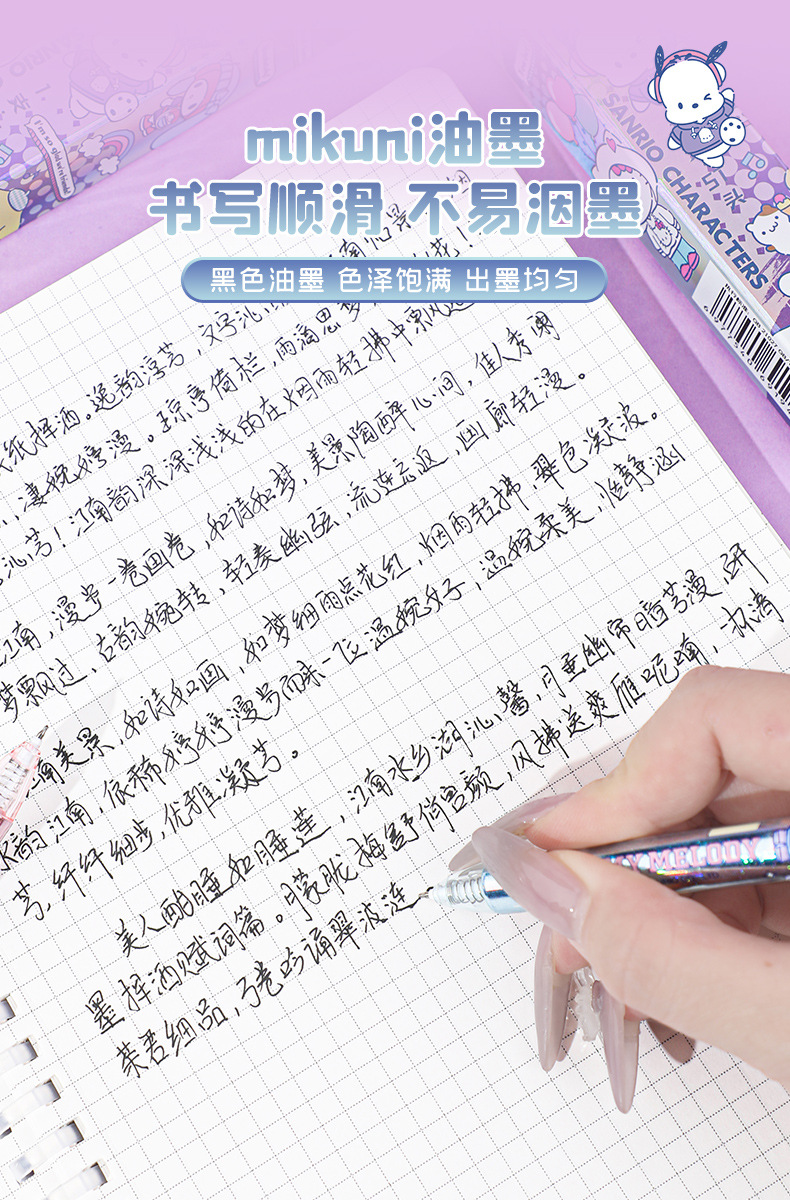 mikuni油墨
书写顺滑 不易洇墨
黑色油墨 色泽饱满 出墨均匀
SANRIO CHARACTERS
挥洒。逸韵淳芳，文字沁
凄婉婷漫。琼亭倚栏，雨滴思梦
沁芳！江南韵深深浅浅的在烟雨轻拂中飘
江南，漫步一卷画卷，如诗如梦，美景陶醉心间，佳人秀阁
梦飘过，古韵婉转，轻奏幽弦，流连忘返，幽廊轻漫。
南美景，如诗如画，如梦细雨点花红，烟雨轻拂，翠色凝波。
韵江南，依稀婷婷漫步而来一位温婉女子，温婉柔美，恬静涵
芳，纤纤细步，优雅凝芳。
美人酣睡如睡莲，江南水乡湖沁馨，月垂幽帘暗芳漫，研
墨挥洒赋词篇。朦胧梅舒俏容颜，风拂送爽雁呢喃，一杯清
茶君细品，弓卷吟诵翠波涟
MY MELODY